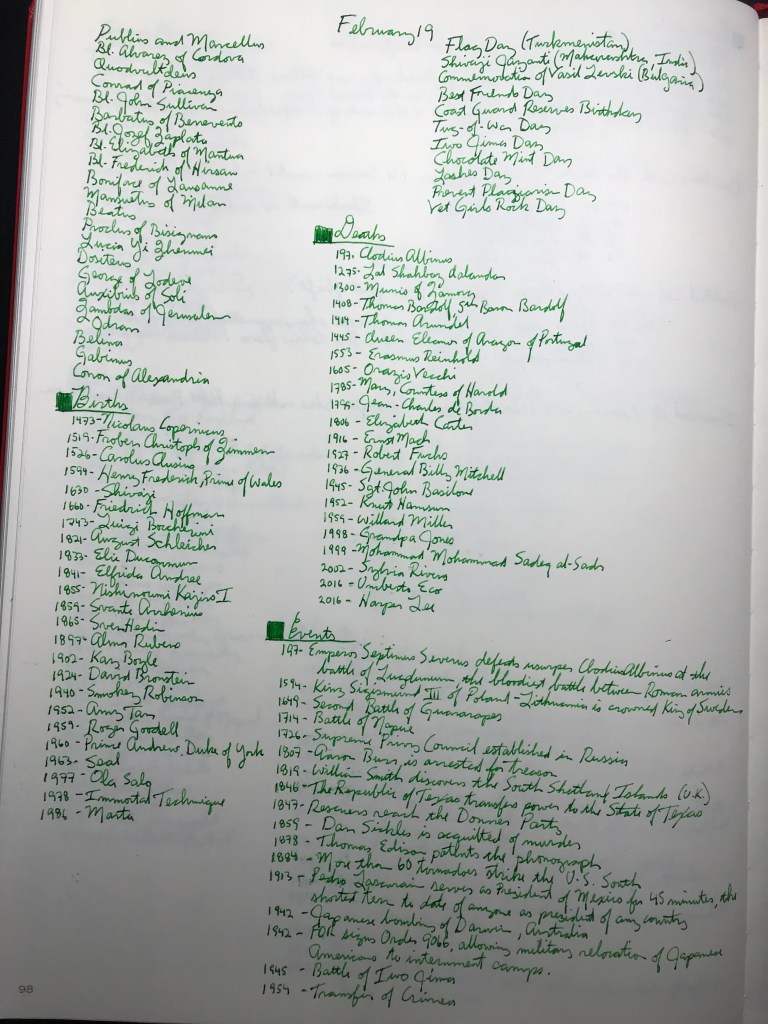 February 19
Publius and Marcellus
Bl. Alvarez of Cordova
Quodvultdeus
Conrad of Piacenza
Bl. John Sullivan
Barbatus of Benevento
Bl. Jozef Zaplata
Bl. Elizabeth of Mantua
Bl. Frederick of Hirsau
Boniface of Lausanne
Mansuetus of Milan
Beatus
Proclus of Bisignano
Lucia Yi Zhenmei
Dositeus
George of Lodeve
Auxibius of Soli
Zambdas of Jerusalem
Odran
Belina
Gabinus
Conon of Alexandria
Flag Day (Turkmenistan)
Shivaji Jayanti (Maharashtra, India)
Commemoration of Vasil Levski (Bulgaria)
Best Friends Day
Coast Guard Reserves Birthday
Tug-of-War Day
Iwo Jima Day
Chocolate Mint Day
Lashes Day
Prevent Plagiarism Day
Vet Girls Rock Day
Births
1473- Nicolaus Copernicus
1519- Froben Christoph of Zimmern
1526- Carolus Clusius
1594- Henry Frederick, Prince of Wales
1630- Shivaji
1660- Friedrich Hoffman
1743- Luigi Boccherini
1821- August Schleicher
1833- Elie Ducommun
1841- Elfrida Andree
1855- Nishinoumi Kajiro I
1859- Svante Arrhenius
1865- Sven Hedin
1897- Alma Rubens
1902- Kay Boyle
1924- David Bronstein
1940- Smokey Robinson
1952- Amy Tan
1959- Roger Goodell
1960- Prince Andrew, Duke of York
1963- Seal
1977- Ola Salo
1978- Immortal Technique
1986- Marta
Deaths
197- Clodius Albinus
1275- Lal Shahbaz Qalandar
1300- Munio of Zamora
1408- Thomas Bardolf, 5th Baron Bardolf
1414- Thomas Arundel
1445- Queen Eleanor of Aragon of Portugal
1553- Erasmus Reinhold
1605- Orazio Vecchi
1785- Mary, Countess of Harold
1799- Jean-Charles de Borda
1806- Elizabeth Carter
1916- Ernst Mach
1927- Robert Fuchs
1936- General Billy Mitchell
1945- Sgt. John Basilone
1952- Knut Hamsun
1959- Willard Miller
1998- Grandpa Jones
1999- Mohammad Mohammad Sadeq al-Sadr
2002- Sylvia Rivera
2016- Umberto Eco
2016- Harper Lee
Events
197- Emperor Septimus Severus defeats usurper Clodius Albinus at the
battle of Lugdunum, the bloodiest battle between Roman armies
1594- King Sigismund III of Poland-Lithuania is crowned King of Sweden
1649- Second Battle of Guararapes
1714- Battle of Napue
1726- Supreme Privy Council established in Russia
1807- Aaron Burr is arrested for treason
1819- William Smith discovers the South Shetland Islands (U.K.)
1846- The Republic of Texas transfers power to the State of Texas
1847- Rescuers reach the Donner Party
1859- Dan Sickles is acquitted of murder
1878- Thomas Edison patents the phonograph
1884- More than 60 tornadoes strike the U.S. South
1913- Pedro Lascurain serves as President of Mexico for 45 minutes, the
shortest term to date of anyone as president of any country
1942- Japanese bombing of Darwin, Australia
1942- FDR signs Order 9066, allowing military relocation of Japanese
Americans to internment camps.
1945- Battle of Iwo Jima
1954- Transfer of Crimea
98